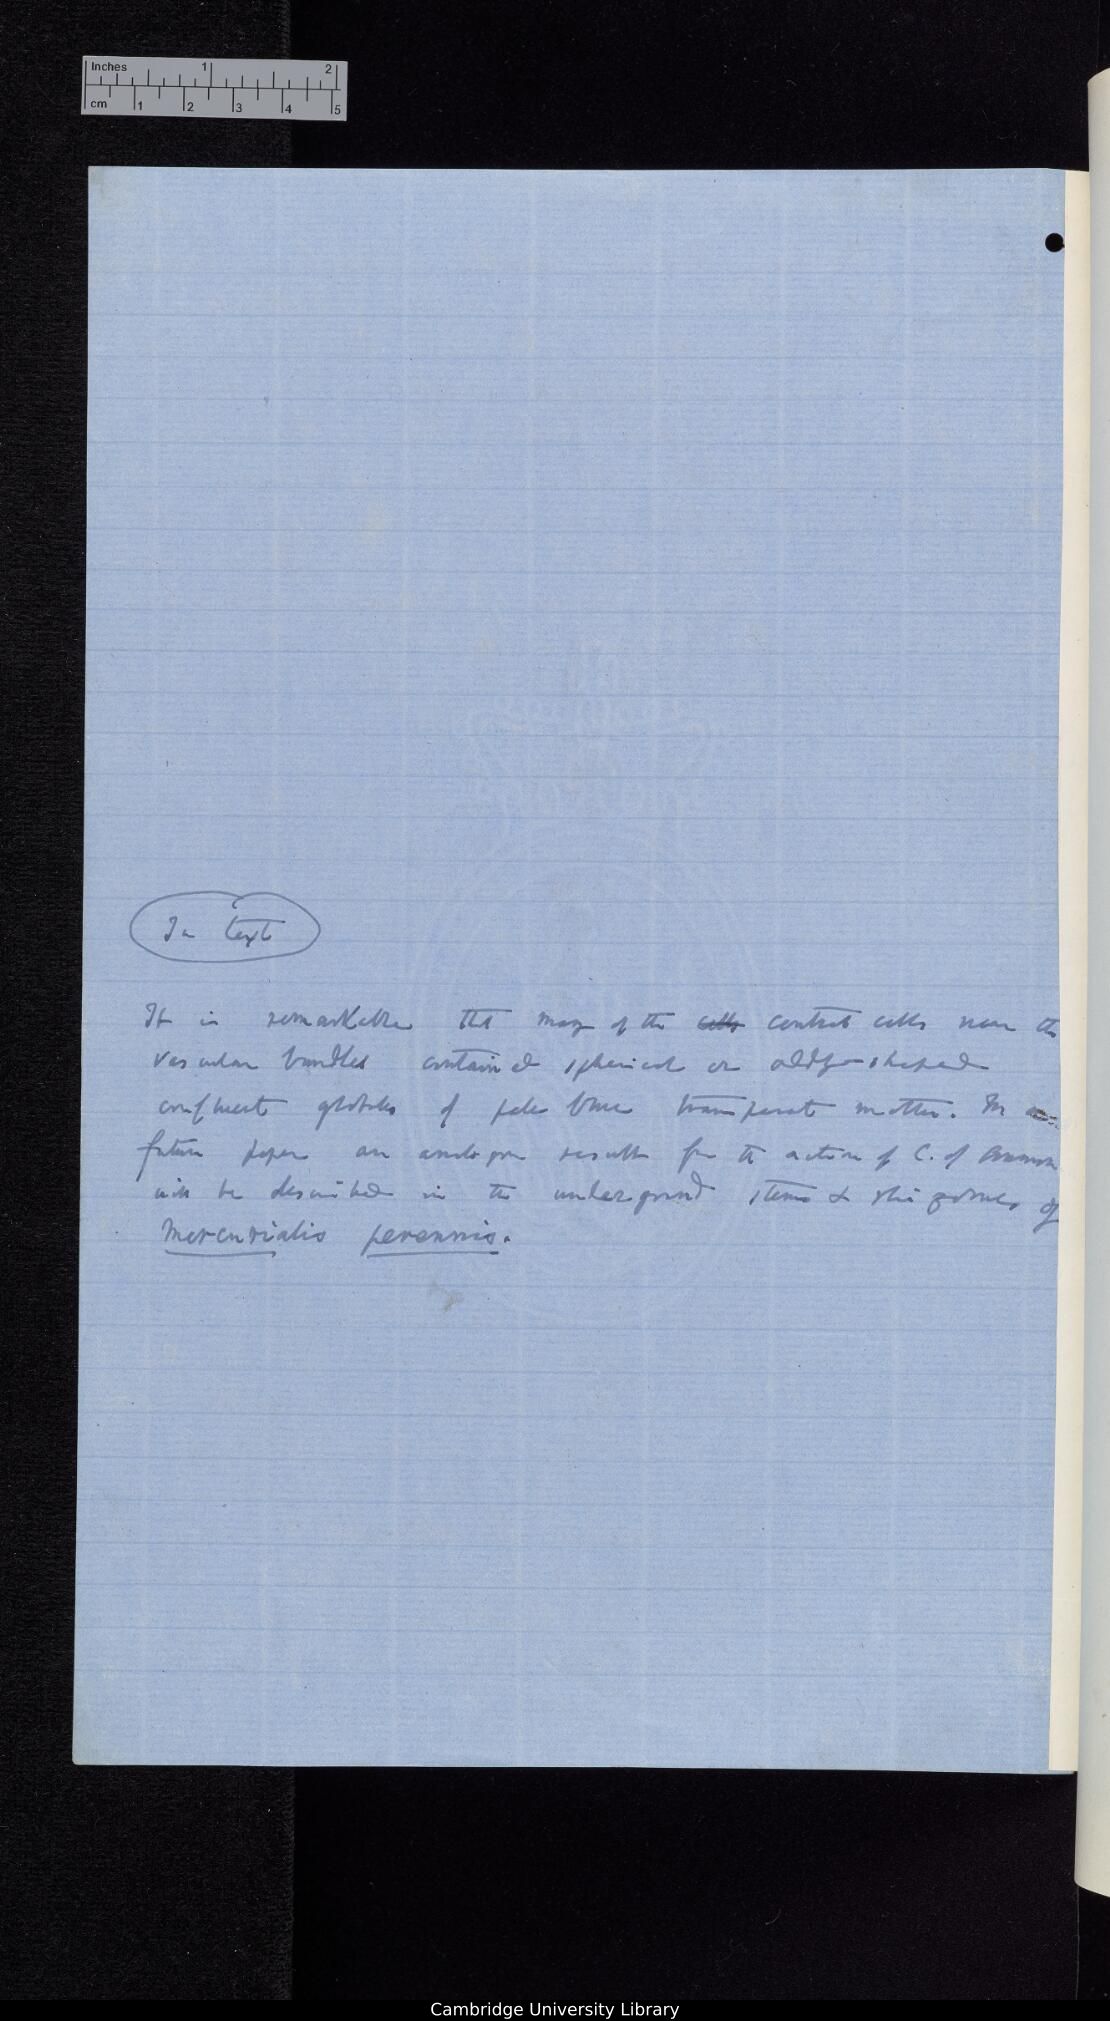 Inches 1 2
cm 1 2 3 4 5
In text
It is remarkable that many of the cells cortical cells near the
vascular bundles contained spherical or oddly-shaped
confluent globules of pale blue transparent matter. In a
future paper an analogous result from the action of C. of Ammonia
will be described in the underground stems & rhizomes of
Mercurialis perennis.
Cambridge University Library